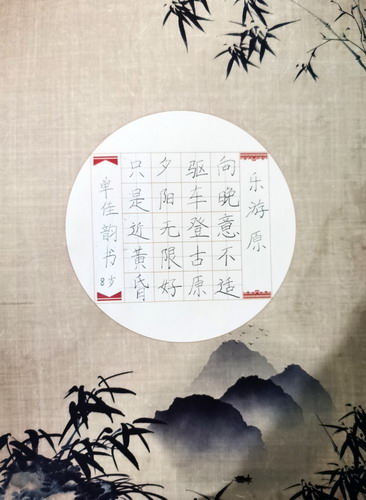 乐游原
向晚意不适
驱车登古原
夕阳无限好
只是近黄昏
单佳韵书
8岁